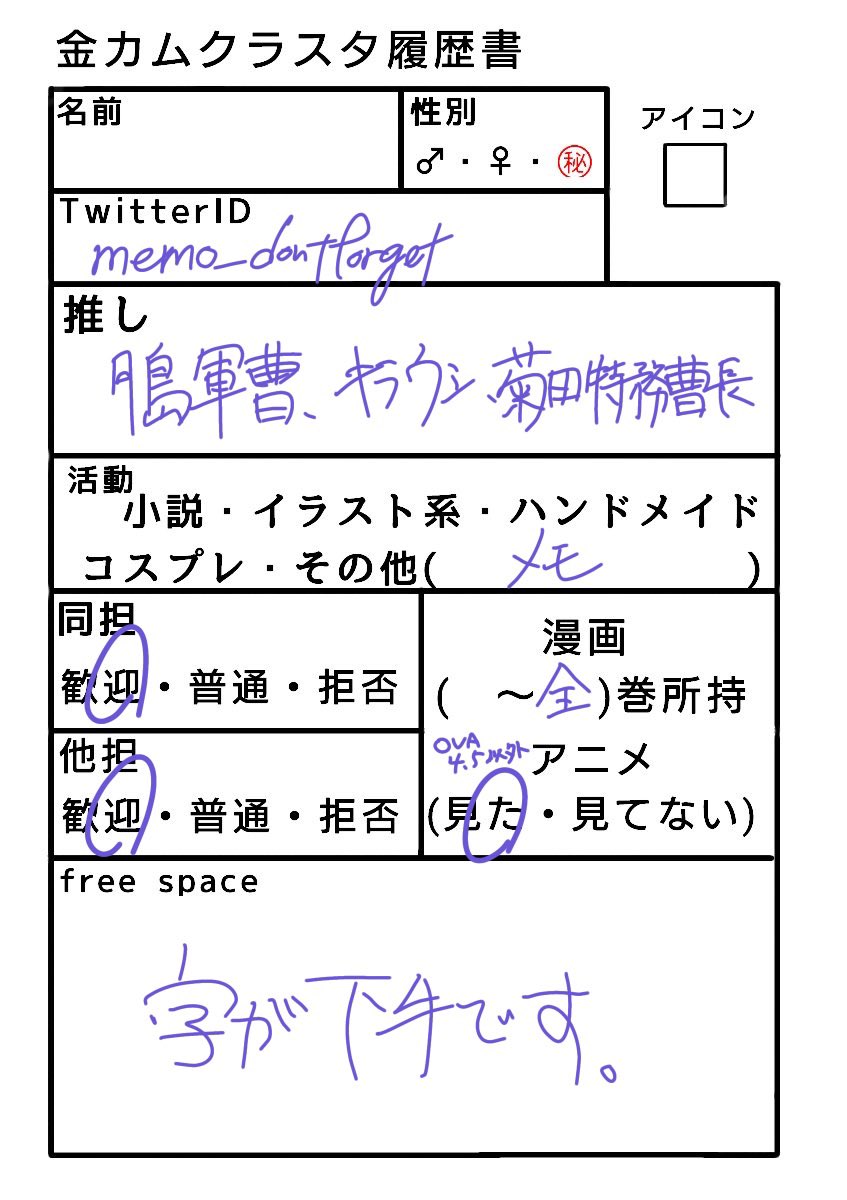 金カムクラスタ履歴書
名前
性別
♂・♀・㊙
アイコン
TwitterID
memo_dontforget
推し
月島軍曹、キラウシ、菊田特務曹長
活動
小説・イラスト系・ハンドメイド
コスプレ・その他(メモ)
同担
歓迎・普通・拒否
他担
歓迎・普通・拒否
漫画
( ～全)巻所持
OVA
4.5以外
アニメ
(見た・見てない)
free space
字が下手です。